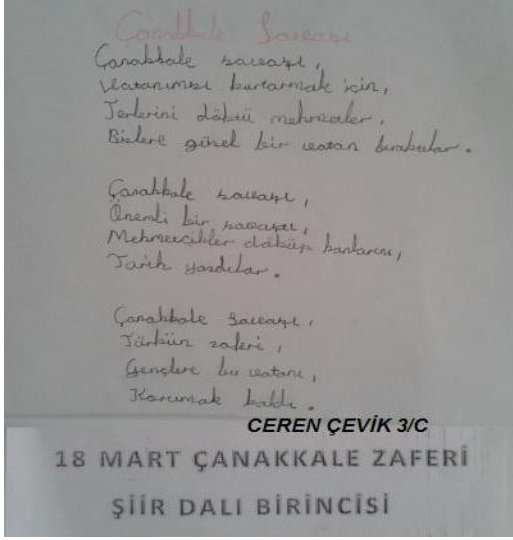 Çanakkale Savaşı
Çanakkale savaşı,
Vatanımızı kurtarmak için,
Terlerini döktü mehmetler,
Bizlere güzel bir vatan bıraktılar.
Çanakkale savaşı,
Önemli bir savaştı,
Mehmetcikler döküp kanlarını,
Tarih yazdılar.
Çanakkale Savaşı,
Türkün zaferi,
Gençlere bu vatanı,
Korumak kaldı.
CEREN ÇEVİK 3/C
18 MART ÇANAKKALE ZAFERİ
ŞİİR DALI BİRİNCİSİ